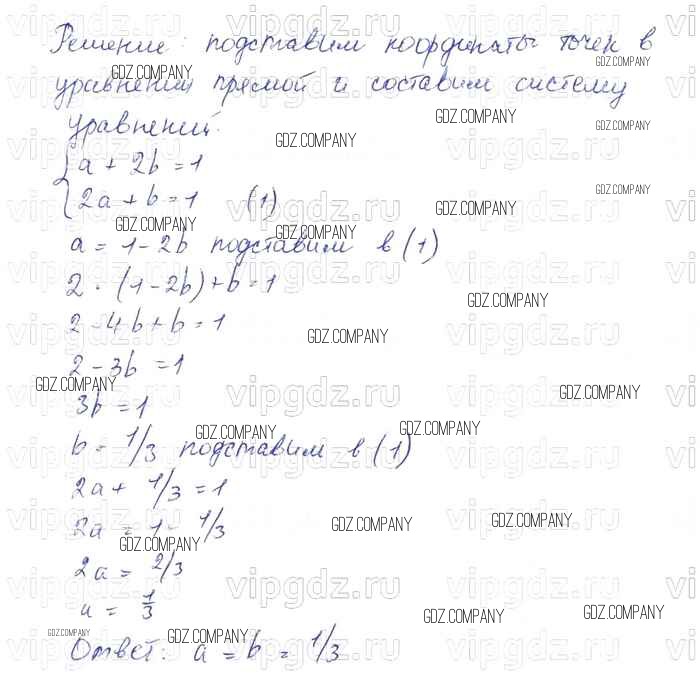 Решение: подставим координаты точек в
уравнений прямой и составим систему
уравнений.
{ a + 2b = 1
{ 2a + b = 1 (1)
a = 1 - 2b подставим в (1)
2 · (1 - 2b) + b = 1
2 - 4b + b = 1
2 - 3b = 1
3b = 1
b = 1/3 подставим в (1)
2a + 1/3 = 1
2a = 1 - 1/3
2a = 2/3
a = 1/3
Ответ: a = b = 1/3
vipgdz.ru
GDZ.COMPANY